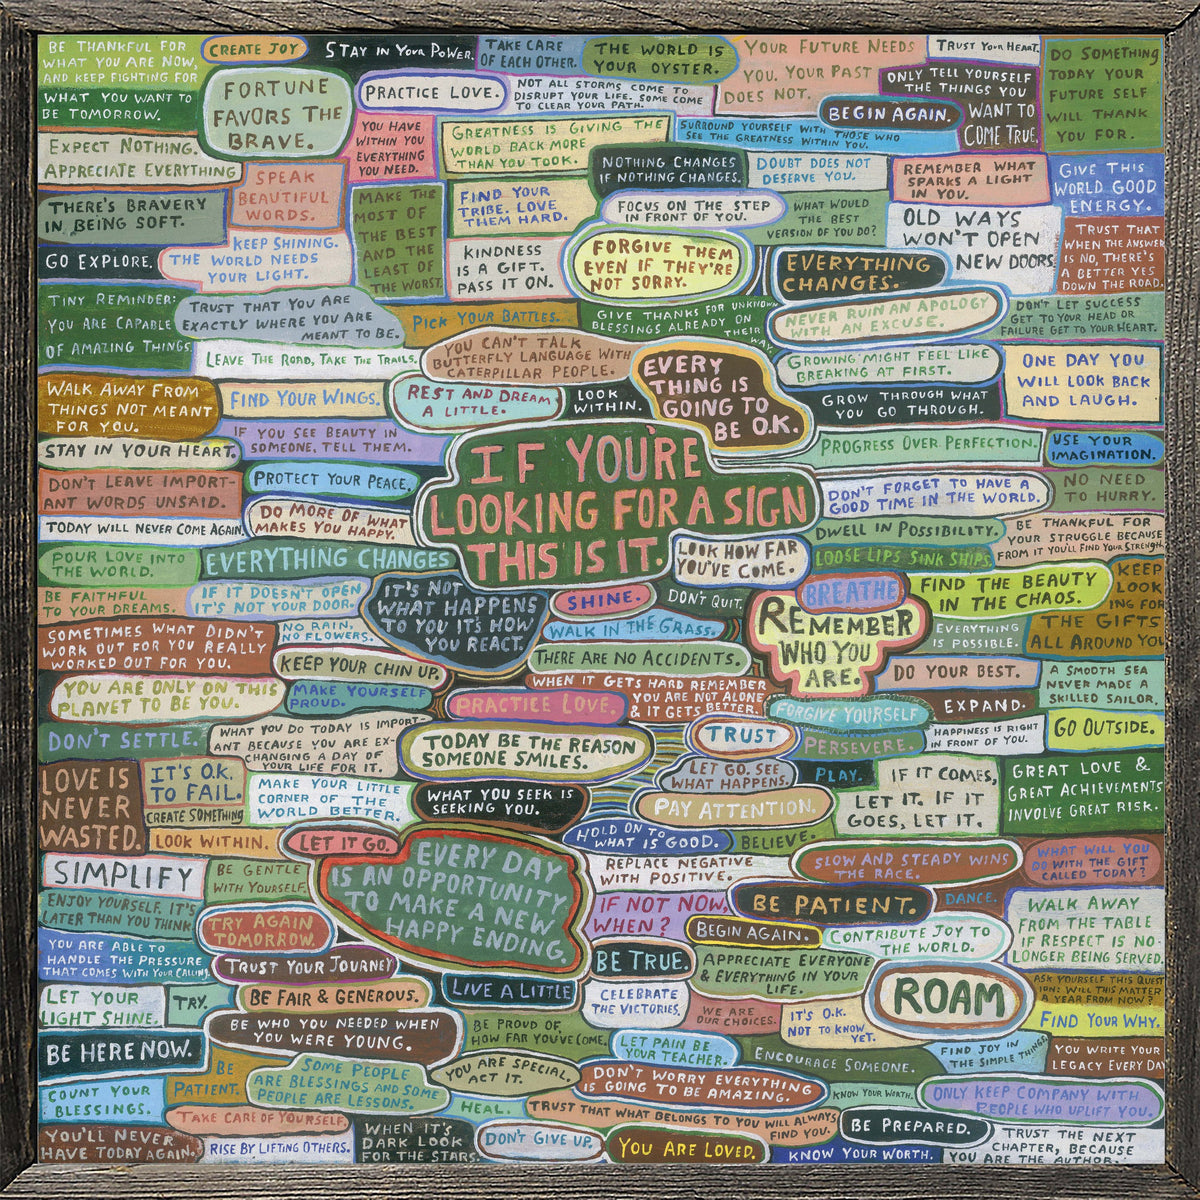 BE THANKFUL FOR
WHAT YOU ARE NOW,
AND KEEP FIGHTING FOR
WHAT YOU WANT TO
BE TOMORROW.
CREATE JOY
STAY IN YOUR POWER.
TAKE CARE
OF EACH OTHER.
THE WORLD IS
YOUR OYSTER.
YOUR FUTURE NEEDS
YOU. YOUR PAST
DOES NOT.
TRUST YOUR HEART.
DO SOMETHING
TODAY YOUR
FUTURE SELF
WILL THANK
YOU FOR.
FORTUNE
FAVORS THE
BRAVE.
PRACTICE LOVE.
NOT ALL STORMS COME TO
DISRUPT YOUR LIFE. SOME COME
TO CLEAR YOUR PATH.
ONLY TELL YOURSELF
THE THINGS YOU
WANT TO
COME TRUE.
BEGIN AGAIN.
EXPECT NOTHING.
APPRECIATE EVERYTHING
YOU HAVE
WITHIN YOU
EVERYTHING
YOU NEED.
GREATNESS IS GIVING THE
WORLD BACK MORE
THAN YOU TOOK.
SURROUND YOURSELF WITH THOSE WHO
SEE THE GREATNESS WITHIN YOU.
SPEAK
BEAUTIFUL
WORDS.
NOTHING CHANGES
IF NOTHING CHANGES.
DOUBT DOES NOT
DESERVE YOU.
REMEMBER WHAT
SPARKS A LIGHT
IN YOU.
GIVE THIS
WORLD GOOD
ENERGY.
THERE'S BRAVERY
IN BEING SOFT.
MAKE THE
MOST OF
THE BEST
AND THE
LEAST OF
THE WORST.
FIND YOUR
TRIBE. LOVE
THEM HARD.
FOCUS ON THE STEP
IN FRONT OF YOU.
WHAT WOULD
THE BEST
VERSION OF YOU DO?
OLD WAYS
WON'T OPEN
NEW DOORS.
TRUST THAT
WHEN THE ANSWER
IS NO, THERE'S
A BETTER YES
DOWN THE ROAD.
GO EXPLORE.
KEEP SHINING.
THE WORLD NEEDS
YOUR LIGHT.
KINDNESS
IS A GIFT.
PASS IT ON.
FORGIVE THEM
EVEN IF THEY'RE
NOT SORRY.
EVERYTHING
CHANGES.
TINY REMINDER:
YOU ARE CAPABLE
OF AMAZING THINGS
TRUST THAT YOU ARE
EXACTLY WHERE YOU ARE
MEANT TO BE.
PICK YOUR BATTLES.
GIVE THANKS FOR UNKNOWN
BLESSINGS ALREADY ON
THEIR
WAY.
NEVER RUIN AN APOLOGY
WITH AN EXCUSE.
DON'T LET SUCCESS
GET TO YOUR HEAD OR
FAILURE GET TO YOUR HEART.
LEAVE THE ROAD, TAKE THE TRAILS.
YOU CAN'T TALK
BUTTERFLY LANGUAGE WITH
CATERPILLAR PEOPLE.
EVERY
THING IS
GOING TO
BE O.K.
GROWING MIGHT FEEL LIKE
BREAKING AT FIRST.
ONE DAY YOU
WILL LOOK BACK
AND LAUGH.
WALK AWAY FROM
THINGS NOT MEANT
FOR YOU.
FIND YOUR WINGS.
REST AND DREAM
A LITTLE.
LOOK
WITHIN.
GROW THROUGH WHAT
YOU GO THROUGH.
STAY IN YOUR HEART.
IF YOU SEE BEAUTY IN
SOMEONE, TELL THEM.
IF YOU'RE
LOOKING FOR A SIGN
THIS IS IT.
PROGRESS OVER PERFECTION.
USE YOUR
IMAGINATION.
DON'T LEAVE IMPORT-
ANT WORDS UNSAID.
PROTECT YOUR PEACE.
DON'T FORGET TO HAVE A
GOOD TIME IN THE WORLD.
NO NEED
TO HURRY.
TODAY WILL NEVER COME AGAIN.
DO MORE OF WHAT
MAKES YOU HAPPY.
DWELL IN POSSIBILITY.
BE THANKFUL FOR
YOUR STRUGGLE BECAUSE
FROM IT YOU'LL FIND YOUR STRENGTH.
POUR LOVE INTO
THE WORLD.
EVERYTHING CHANGES
LOOK HOW FAR
YOU'VE COME.
LOOSE LIPS SINK SHIPS.
BE FAITHFUL
TO YOUR DREAMS.
IF IT DOESN'T OPEN
IT'S NOT YOUR DOOR.
IT'S NOT
WHAT HAPPENS
TO YOU IT'S HOW
YOU REACT.
SHINE.
DON'T QUIT.
BREATHE
FIND THE BEAUTY
IN THE CHAOS.
KEEP
LOOK
ING FOR
THE GIFTS
ALL AROUND YOU
SOMETIMES WHAT DIDN'T
WORK OUT FOR YOU REALLY
WORKED OUT FOR YOU.
NO RAIN,
NO FLOWERS.
WALK IN THE GRASS.
REMEMBER
WHO YOU
ARE.
EVERYTHING
IS POSSIBLE.
KEEP YOUR CHIN UP.
THERE ARE NO ACCIDENTS.
DO YOUR BEST.
A SMOOTH SEA
NEVER MADE A
SKILLED SAILOR.
YOU ARE ONLY ON THIS
PLANET TO BE YOU.
MAKE YOURSELF
PROUD.
PRACTICE LOVE.
WHEN IT GETS HARD REMEMBER
YOU ARE NOT ALONE
& IT GETS BETTER.
FORGIVE YOURSELF
EXPAND.
DON'T SETTLE.
WHAT YOU DO TODAY IS IMPORT-
ANT BECAUSE YOU ARE EX-
CHANGING A DAY OF
YOUR LIFE FOR IT.
TODAY BE THE REASON
SOMEONE SMILES.
TRUST
PERSEVERE.
HAPPINESS IS RIGHT
IN FRONT OF YOU.
GO OUTSIDE.
LOVE IS
NEVER
WASTED.
IT'S O.K.
TO FAIL.
CREATE SOMETHING
MAKE YOUR LITTLE
CORNER OF THE
WORLD BETTER.
WHAT YOU SEEK IS
SEEKING YOU.
LET GO. SEE
WHAT HAPPENS.
PLAY.
IF IT COMES,
LET IT. IF IT
GOES, LET IT.
GREAT LOVE &
GREAT ACHIEVEMENTS
INVOLVE GREAT RISK.
PAY ATTENTION.
LOOK WITHIN.
LET IT GO.
HOLD ON TO
WHAT IS GOOD.
BELIEVE.
SIMPLIFY
BE GENTLE
WITH YOURSELF.
EVERY DAY
IS AN OPPORTUNITY
TO MAKE A NEW
HAPPY ENDING.
REPLACE NEGATIVE
WITH POSITIVE.
SLOW AND STEADY WINS
THE RACE.
WHAT WILL YOU
DO WITH THE GIFT
CALLED TODAY?
ENJOY YOURSELF, IT'S
LATER THAN YOU THINK
TRY AGAIN
TOMORROW.
IF NOT NOW,
WHEN?
BE PATIENT.
DANCE.
WALK AWAY
FROM THE TABLE
IF RESPECT IS NO
LONGER BEING SERVED.
BEGIN AGAIN.
CONTRIBUTE JOY TO
THE WORLD.
YOU ARE ABLE TO
HANDLE THE PRESSURE
THAT COMES WITH YOUR CALLING.
TRUST YOUR JOURNEY
BE TRUE.
APPRECIATE EVERYONE
& EVERYTHING IN YOUR
LIFE.
ROAM
ASK YOURSELF THIS QUEST
ION: WILL THIS MATTER
A YEAR FROM NOW?
LET YOUR
LIGHT SHINE.
TRY.
BE FAIR & GENEROUS.
LIVE A LITTLE
CELEBRATE
THE VICTORIES.
WE ARE
OUR CHOICES.
IT'S O.K.
NOT TO KNOW
YET.
FIND YOUR WHY.
BE HERE NOW.
BE WHO YOU NEEDED WHEN
YOU WERE YOUNG.
BE PROUD OF
HOW FAR YOU'VE COME.
LET PAIN BE
YOUR TEACHER.
ENCOURAGE SOMEONE.
FIND JOY IN
THE SIMPLE THINGS.
YOU WRITE YOUR
LEGACY EVERY DAY
COUNT YOUR
BLESSINGS.
BE
PATIENT.
SOME PEOPLE
ARE BLESSINGS AND SOME
PEOPLE ARE LESSONS.
YOU ARE SPECIAL.
ACT IT.
DON'T WORRY EVERYTHING
IS GOING TO BE AMAZING.
KNOW YOUR WORTH.
ONLY KEEP COMPANY WITH
PEOPLE WHO UPLIFT YOU.
TAKE CARE OF YOURSELF.
HEAL.
TRUST THAT WHAT BELONGS TO YOU WILL ALWAYS
FIND YOU.
BE PREPARED.
YOU'LL NEVER
HAVE TODAY AGAIN.
RISE BY LIFTING OTHERS.
WHEN IT'S
DARK LOOK
FOR THE STARS.
DON'T GIVE UP.
YOU ARE LOVED.
KNOW YOUR WORTH.
TRUST THE NEXT
CHAPTER, BECAUSE
YOU ARE THE AUTHOR.